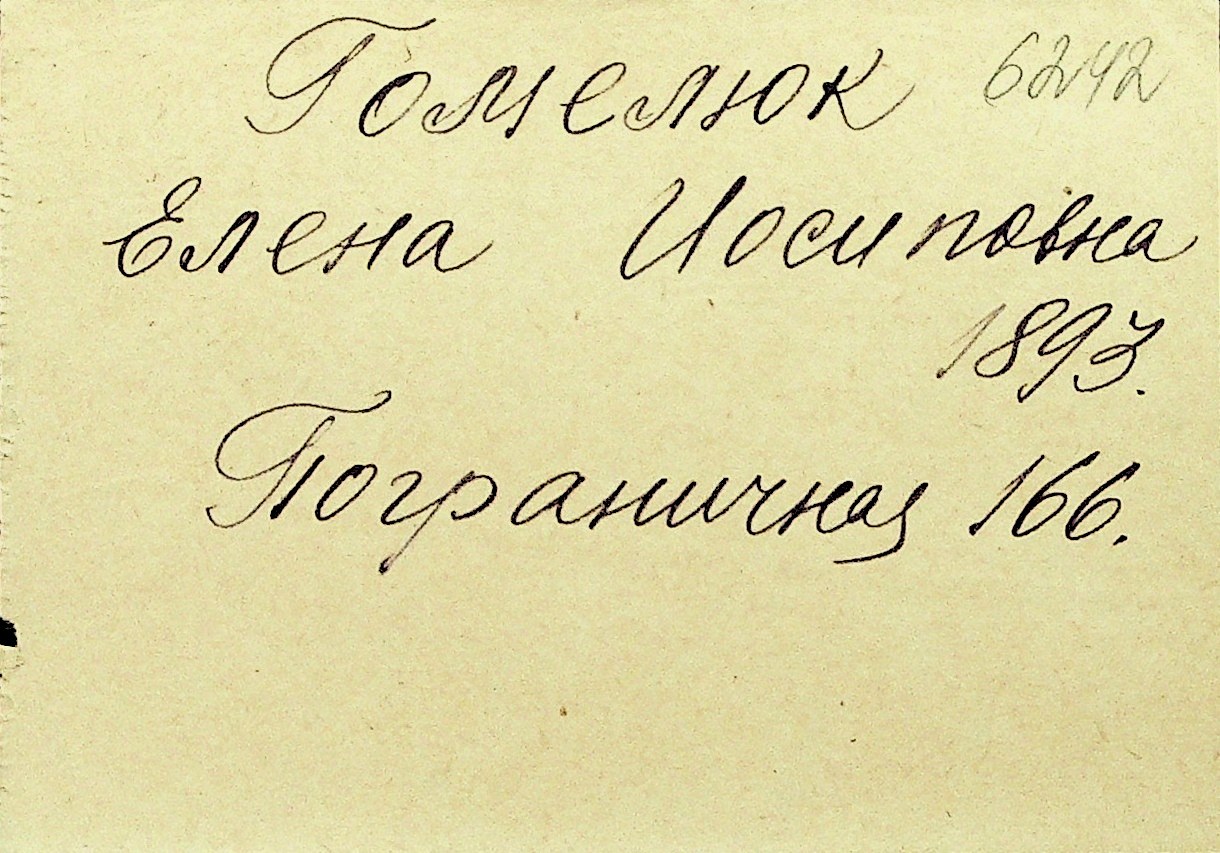 Гомелюк 6242
Елена Иосиповна
1893.
Пограничная 166.